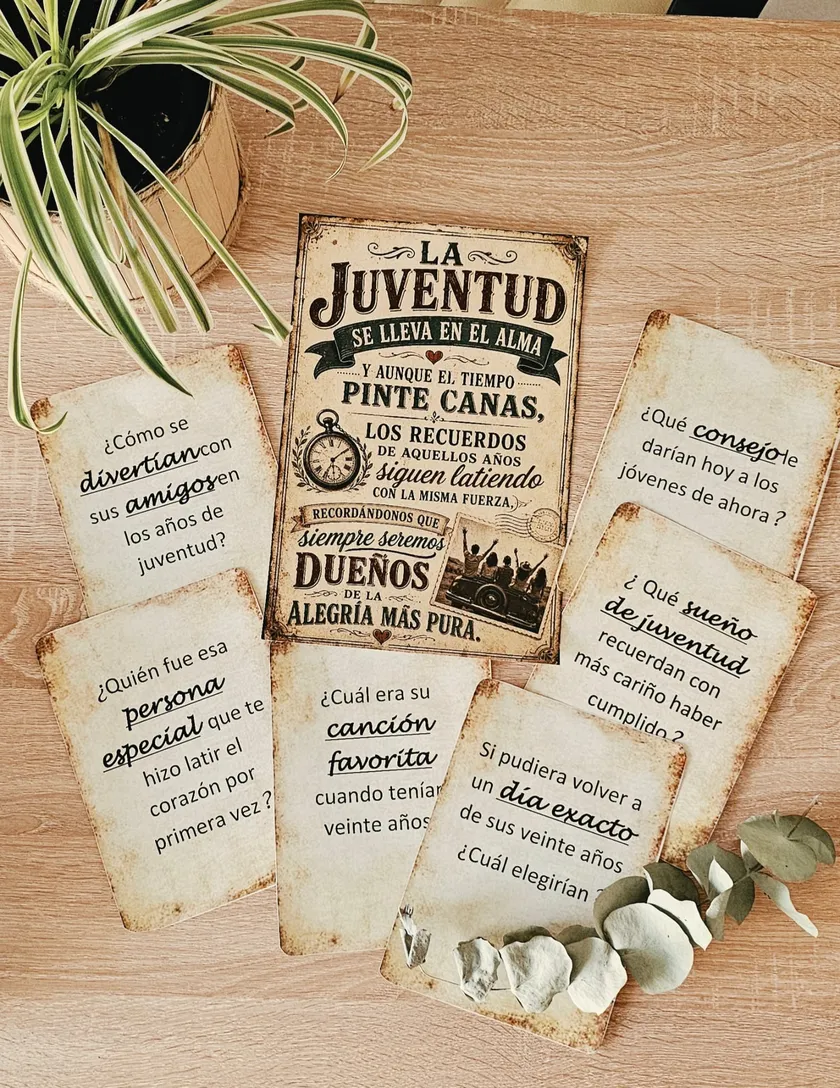 LA
JUVENTUD
SE LLEVA EN EL ALMA
Y AUNQUE EL TIEMPO
PINTE CANAS,
LOS RECUERDOS
DE AQUELLOS AÑOS
siguen latiendo
CON LA MISMA FUERZA,
RECORDÁNDONOS QUE
siempre seremos
DUEÑOS
DE LA
ALEGRÍA MÁS PURA.
¿Cómo se
divertían con
sus amigos en
los años de
juventud?
¿Quién fue esa
persona
especial que te
hizo latir el
corazón por
primera vez ?
¿Cuál era su
canción
favorita
cuando tenían
veinte años
Si pudiera volver a
un día exacto
de sus veinte años
¿Cuál elegirían ?
¿ Qué sueño
de juventud
recuerdan con
más cariño haber
cumplido ?
¿Qué consejo le
darían hoy a los
jóvenes de ahora ?